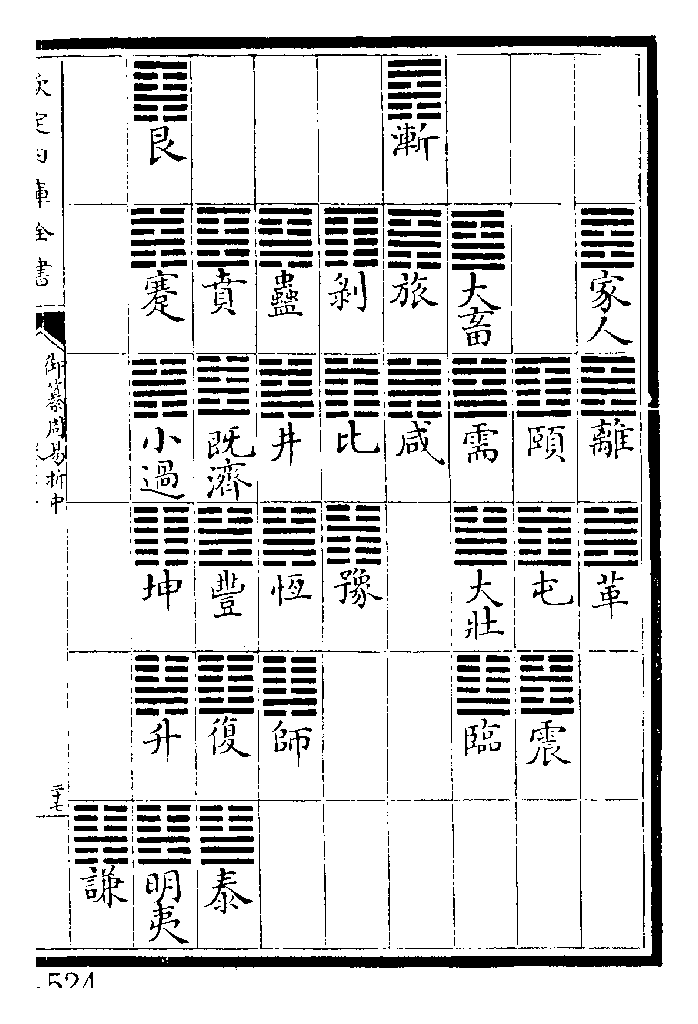 家人
離
革
頤
屯
震
大畜
需
大壯
臨
漸
旅
咸
剝
比
豫
蠱
井
恆
師
賁
既濟
豐
復
泰
艮
蹇
小過
坤
升
明夷
謙
欽定四庫全書
御纂周易折中
524